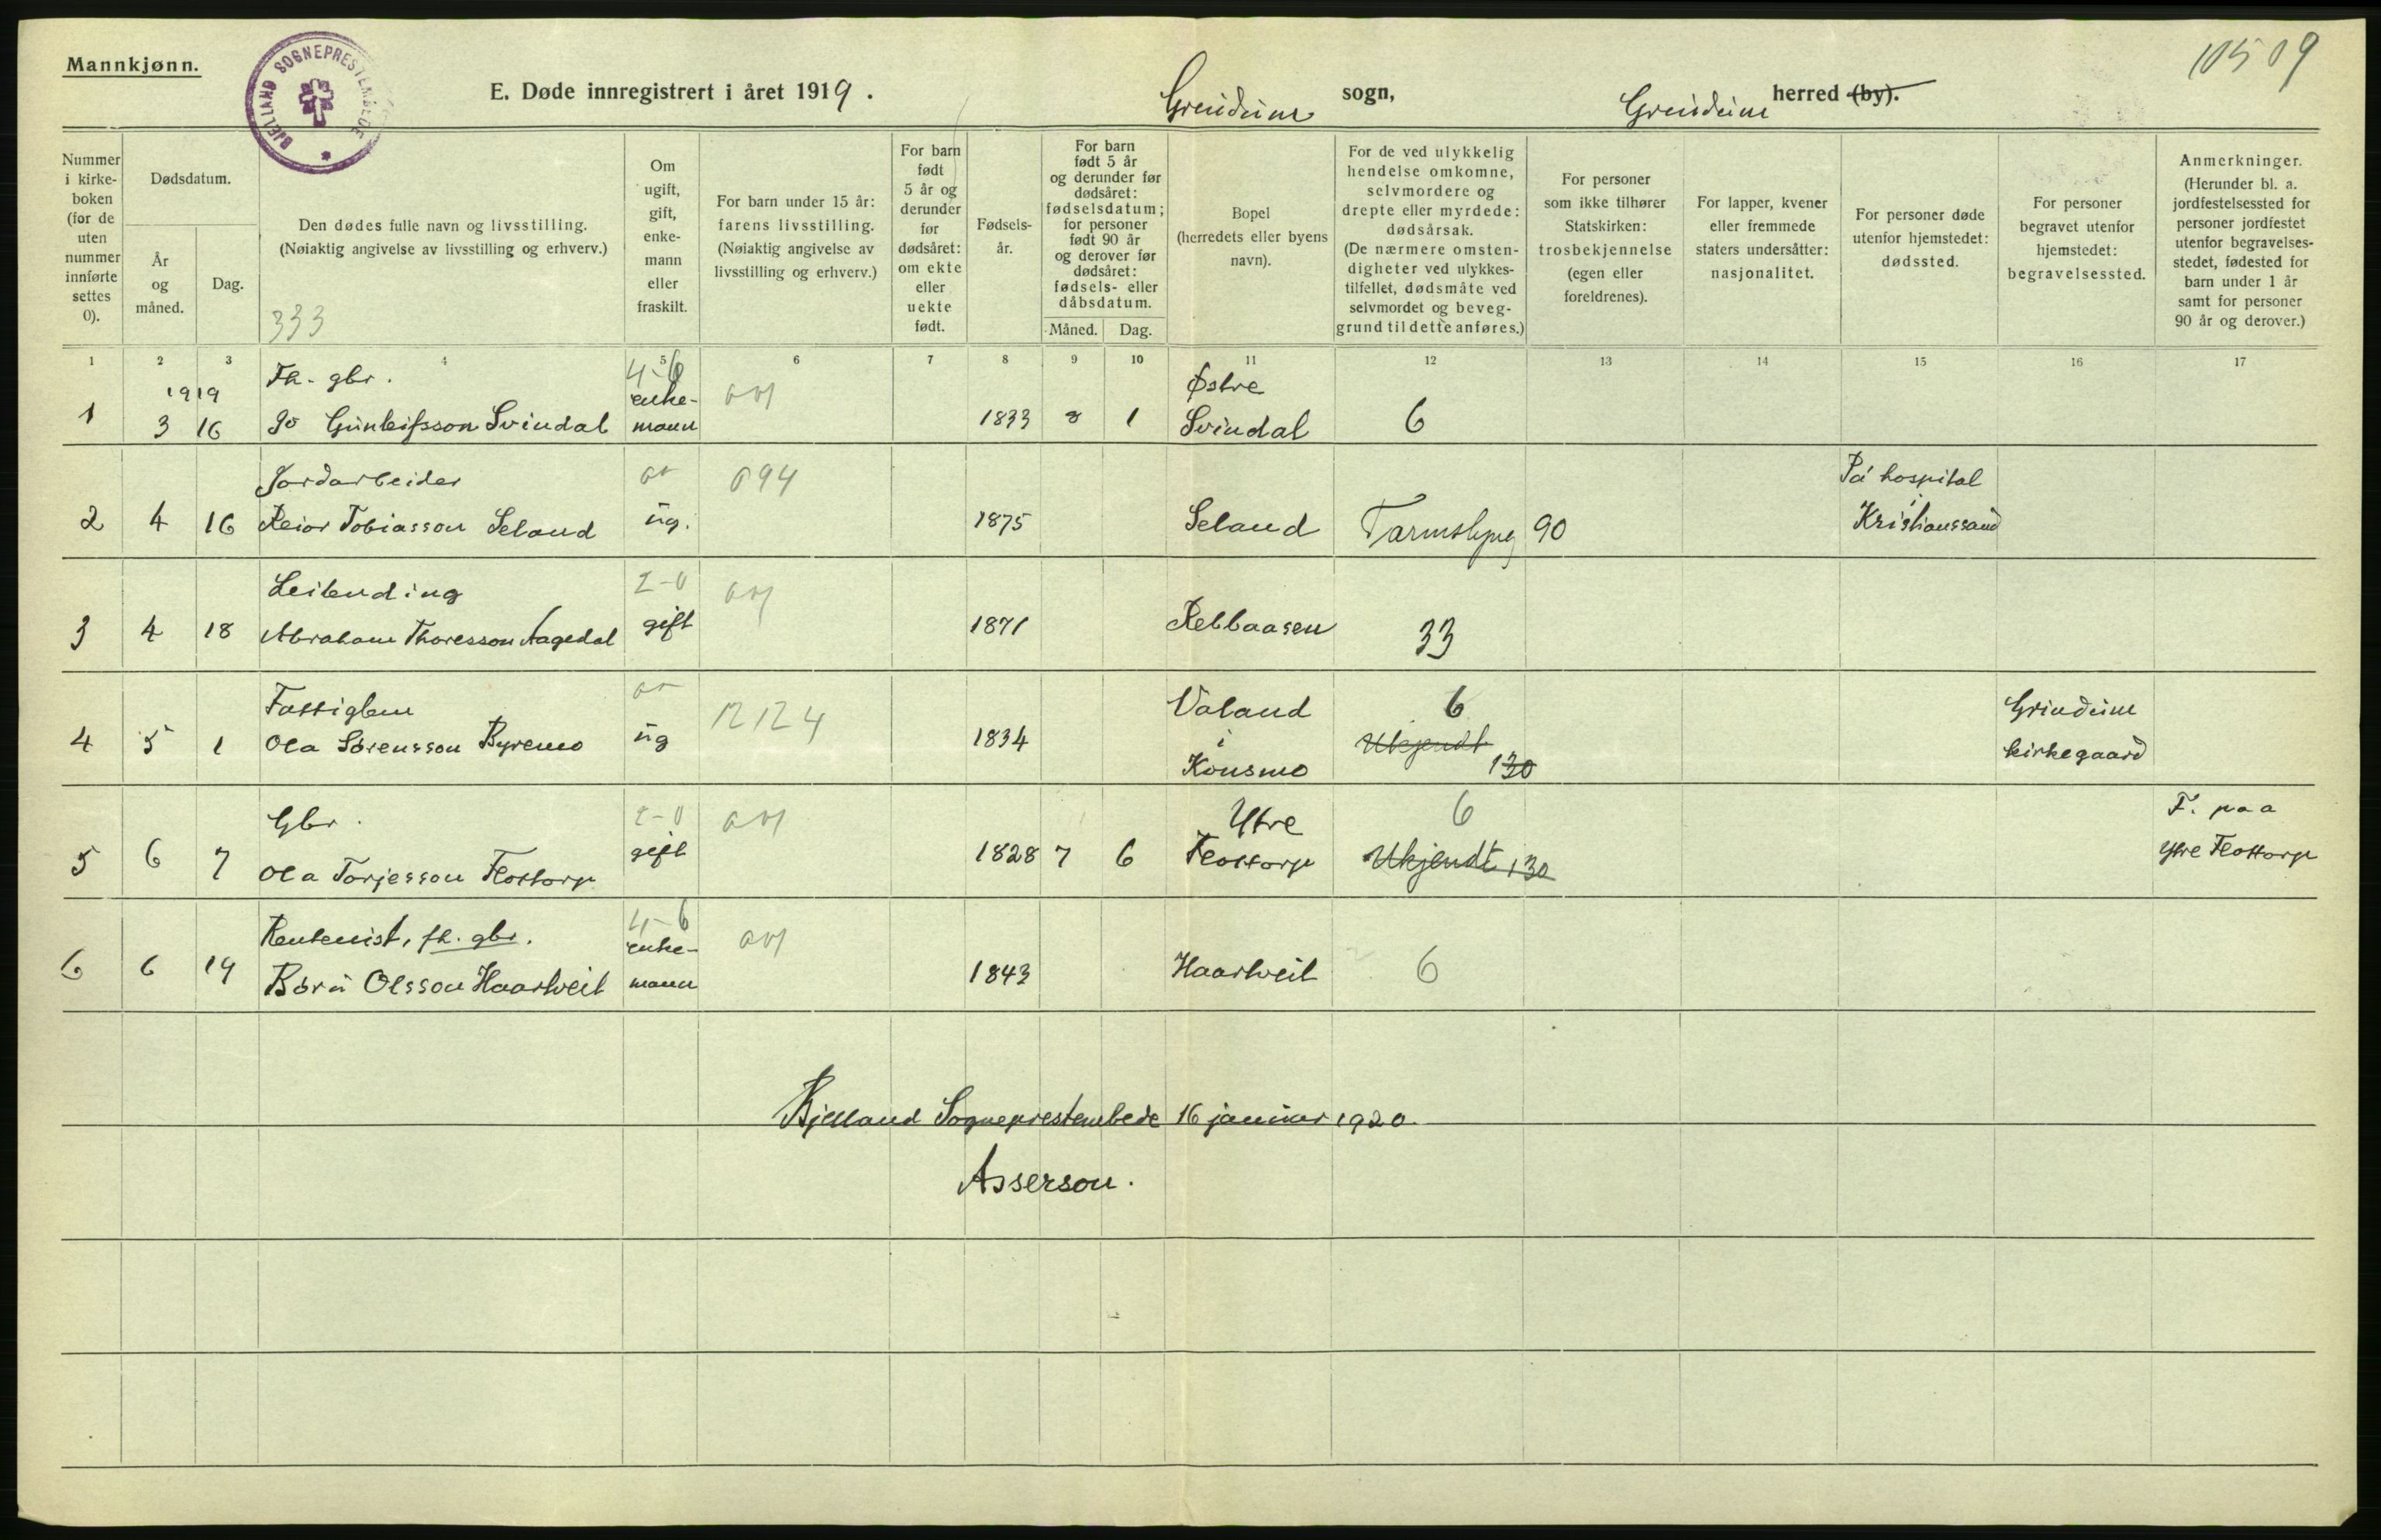 Mannkjønn.
BJELLAND SOGNEPRESTEMBEDE
E. Døde innregistrert i året 1919.
Grindum sogn,
Grindum herred (by).
10509
Nummer i kirkeboken (for de uten nummer innførte settes 0).
Dødsdatum.
År og måned.
Dag.
Den dødes fulle navn og livsstilling.
(Nøiaktig angivelse av livsstilling og erhverv.)
333
Om ugift, gift, enkemann eller fraskilt.
For barn under 15 år: farens livsstilling.
(Nøiaktig angivelse av livsstilling og erhverv.)
For barn født 5 år og derunder før dødsåret: om ekte eller uekte født.
Fødselsår.
For barn født 5 år og derunder før dødsåret: fødselsdatum; for personer født 90 år og derover før dødsåret: fødsels- eller dåbsdatum.
Måned.
Dag.
Bopel (herredets eller byens navn).
For de ved ulykkelig hendelse omkomne, selvmordere og drepte eller myrdede: dødsårsak.
(De nærmere omstendigheter ved ulykkestilfellet, dødsmåte ved selvmordet og beveggrund til dette anføres.)
For personer som ikke tilhører Statskirken: trosbekjennelse (egen eller foreldrenes).
For lapper, kvener eller fremmede staters undersåtter: nasjonalitet.
For personer døde utenfor hjemstedet: dødssted.
For personer begravet utenfor hjemstedet: begravelsessted.
Anmerkninger.
(Herunder bl. a. jordfestelsessted for personer jordfestet utenfor begravelsesstedet, fødested for barn under 1 år samt for personer 90 år og derover.)
1 2 3 4 5 6 7 8 9 10 11 12 13 14 15 16 17
1919 Fh. gbr. 4-6 Østre
1 3 16 Gunleifsson Svindal enkemann 1833 8 1 Svindal 6
Jordarbeider 094 På hospital
2 4 16 Reiar Tobiasson Seland ug. 1875 Seland Tarmslyng 90 i Kristianssand
Leilending 2-0
3 4 18 Abraham Thoresson Aagedal gift 1871 33
Fattiglem 12124 Valand 6 Grindum
4 5 1 Ola Sørensson Byremo ug 1834 i Konsmo Ukjendt 130 kirkegaard
Gbr. 2-0 Ytre 6 F. paa
5 6 7 Ola Torjesson Flottorp gift 1828 7 6 Flottorp Ukjendt 130 Ytre Flottorp
Rentenist, fh. gbr. 4-6
6 6 19 Olsson Haartveit enkemann 1843 Haartveit 6
Bjelland Sogneprestembede 16 januar 1920.
Asserson.